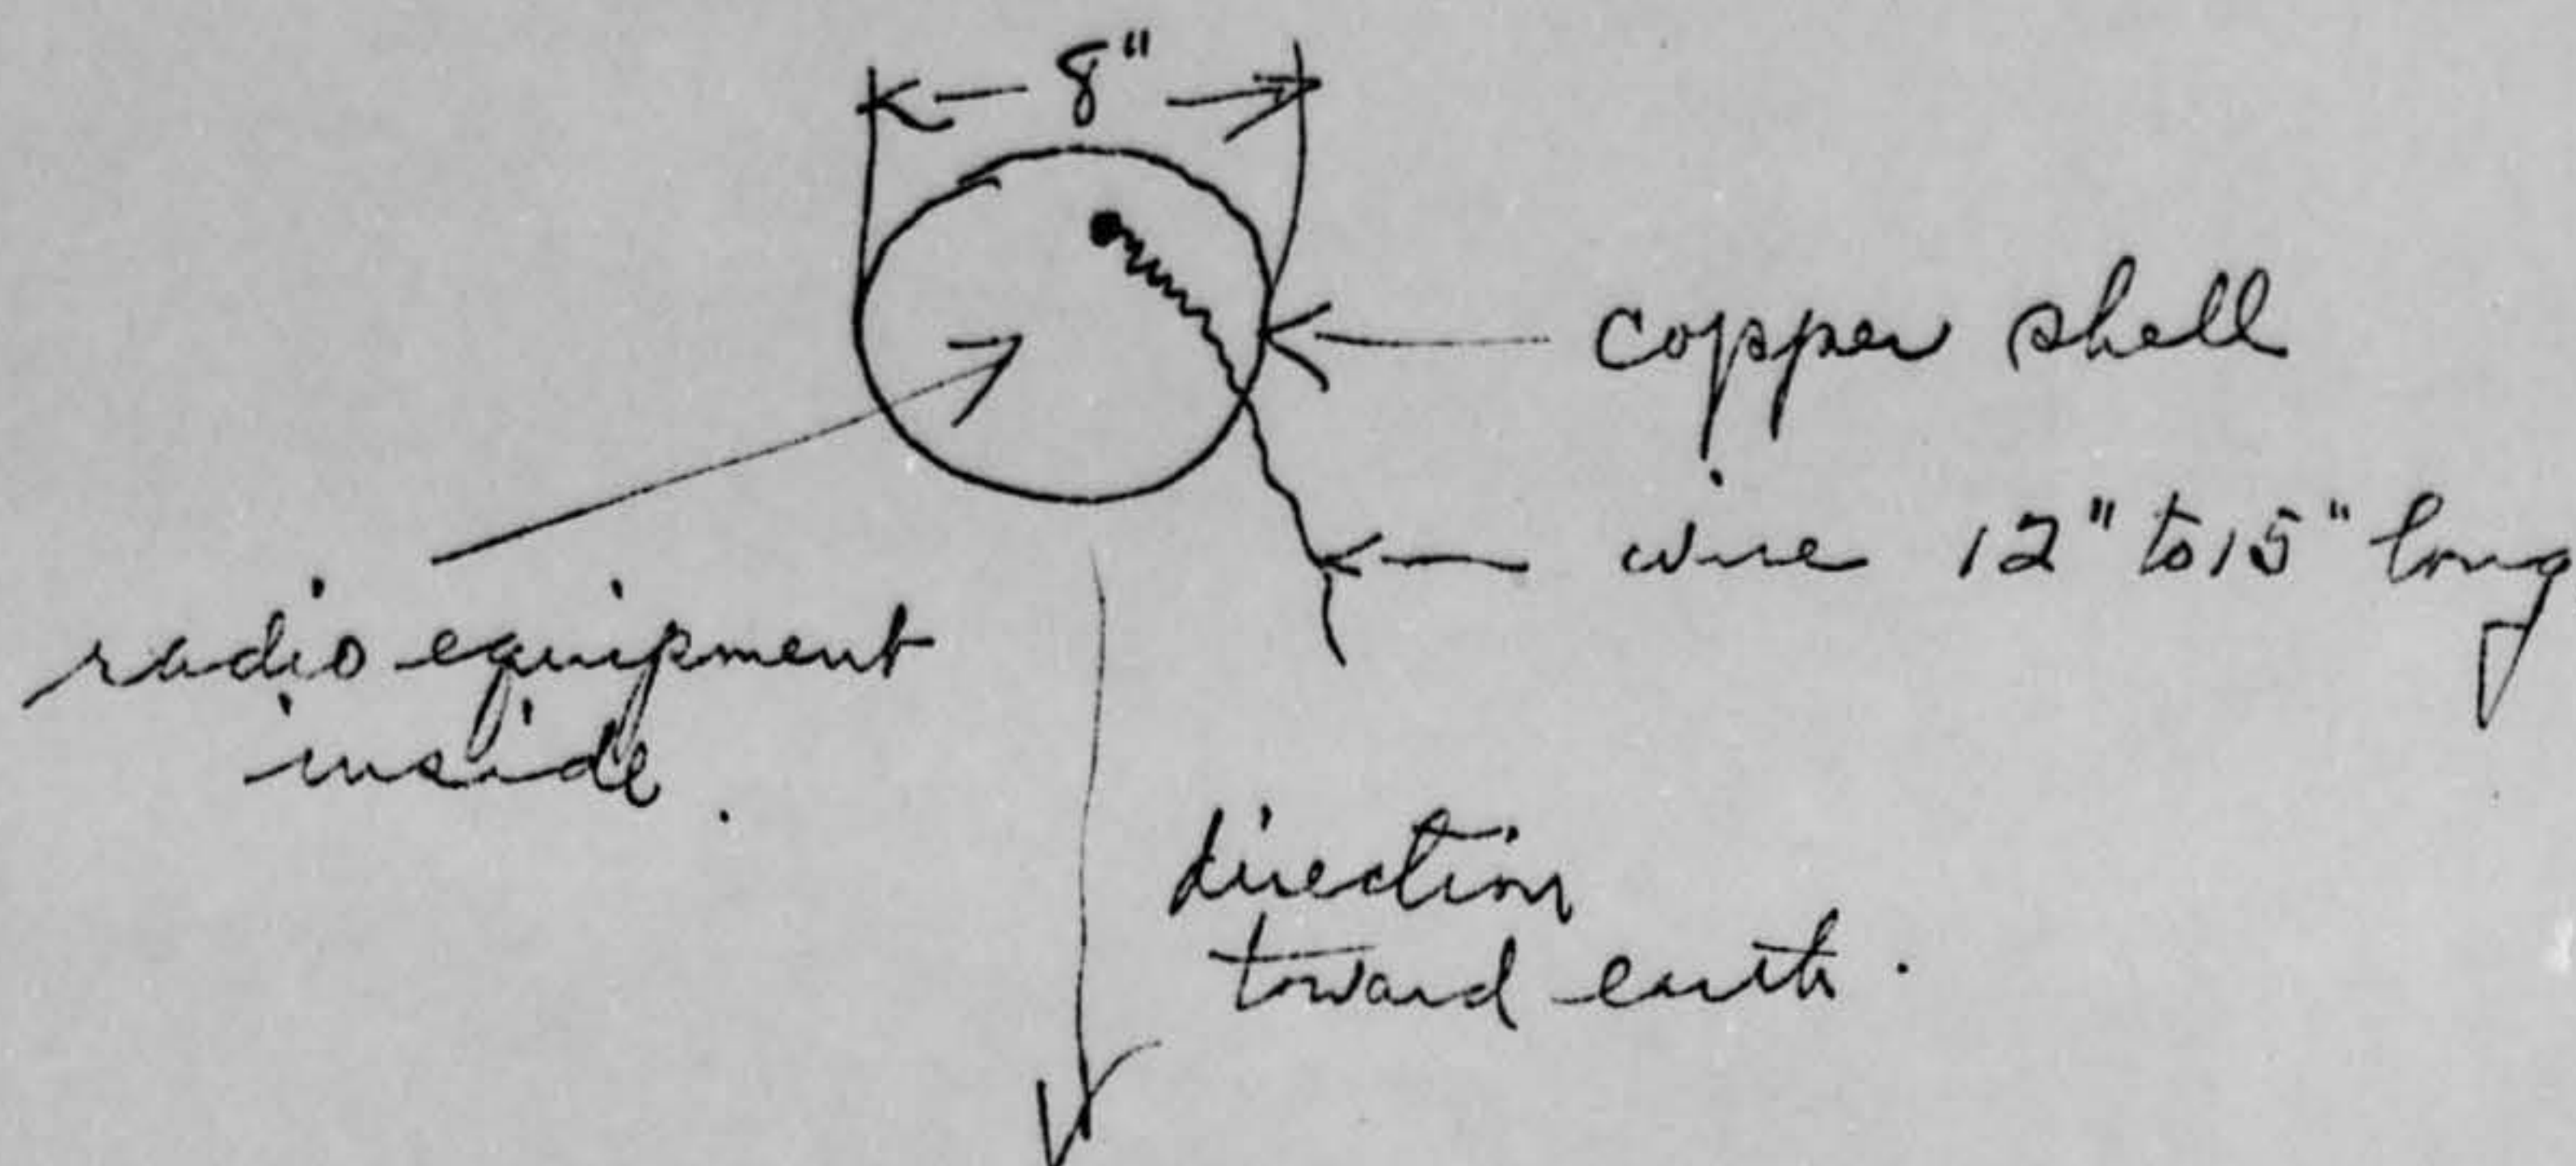 8"
copper shell
wire 12" to 15" long
radio equipment
inside.
direction
toward earth.